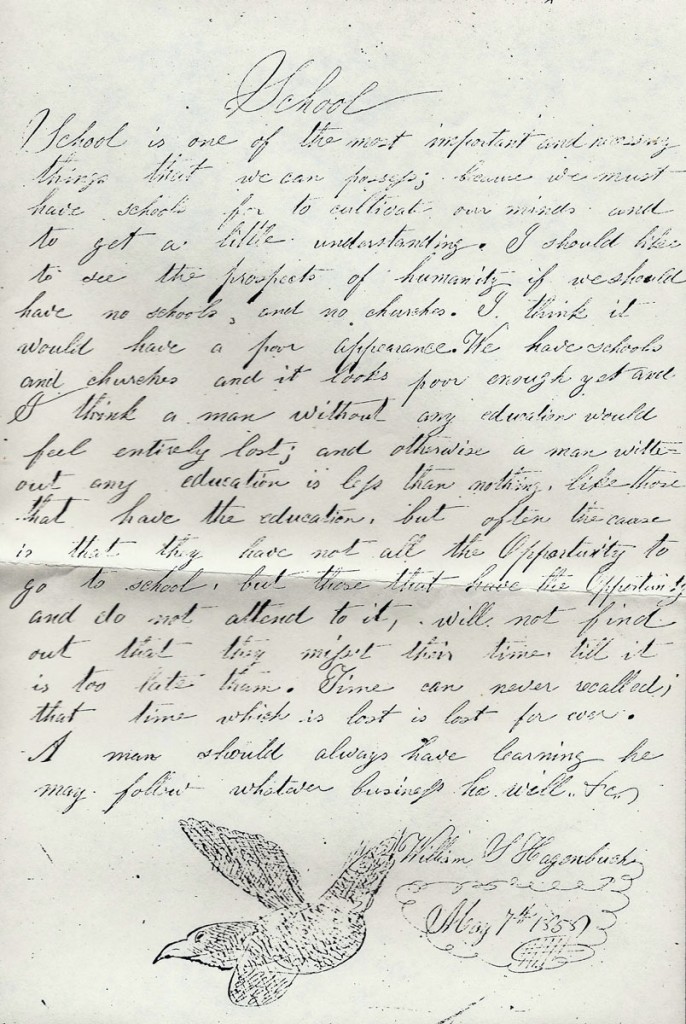 School
School is one of the most important and
things that we can possess; because we must
have schools for to cultivate our minds and
to get a little understanding. I should like
to see the prospects of humanity if we should
have no schools, and no churches. I think it
would have a poor appearance. We have schools
and churches and it looks poor enough yet and
I think a man without any education would
feel entirely lost; and otherwise a man with=
out any education is less than nothing, like those
that have the education, but often the cause
is that they have not all the Opportunity to
go to school, but those that have the Opportunity
and do not attend to it, will not find
out that they misst their time till it
is too late them. Time can never recalled;
that time which is lost is lost for ever.
A man should always have learning he
may follow whatever business he will. &c,
William S Hagenbuch
May 7th